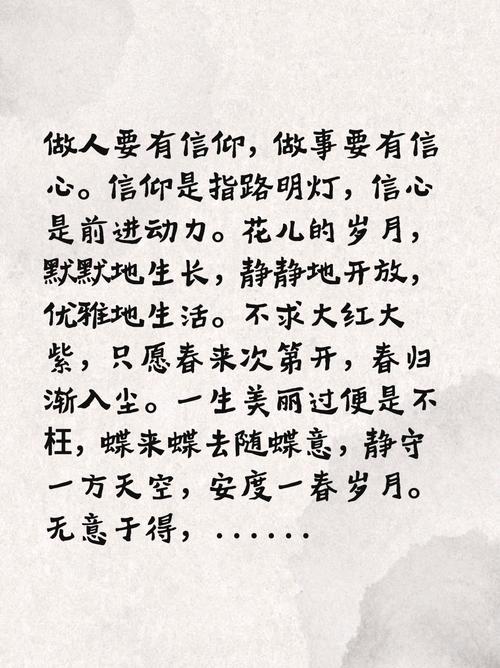 做人要有信仰，做事要有信
心。信仰是指路明灯，信心
是前进动力。花儿的岁月，
默默地生长，静静地开放，
优雅地生活。不求大红大
紫，只愿春来次第开，春归
渐入尘。一生美丽过便是不
枉，蝶来蝶去随蝶意，静守
一方天空，安度一春岁月。
无意于得，......